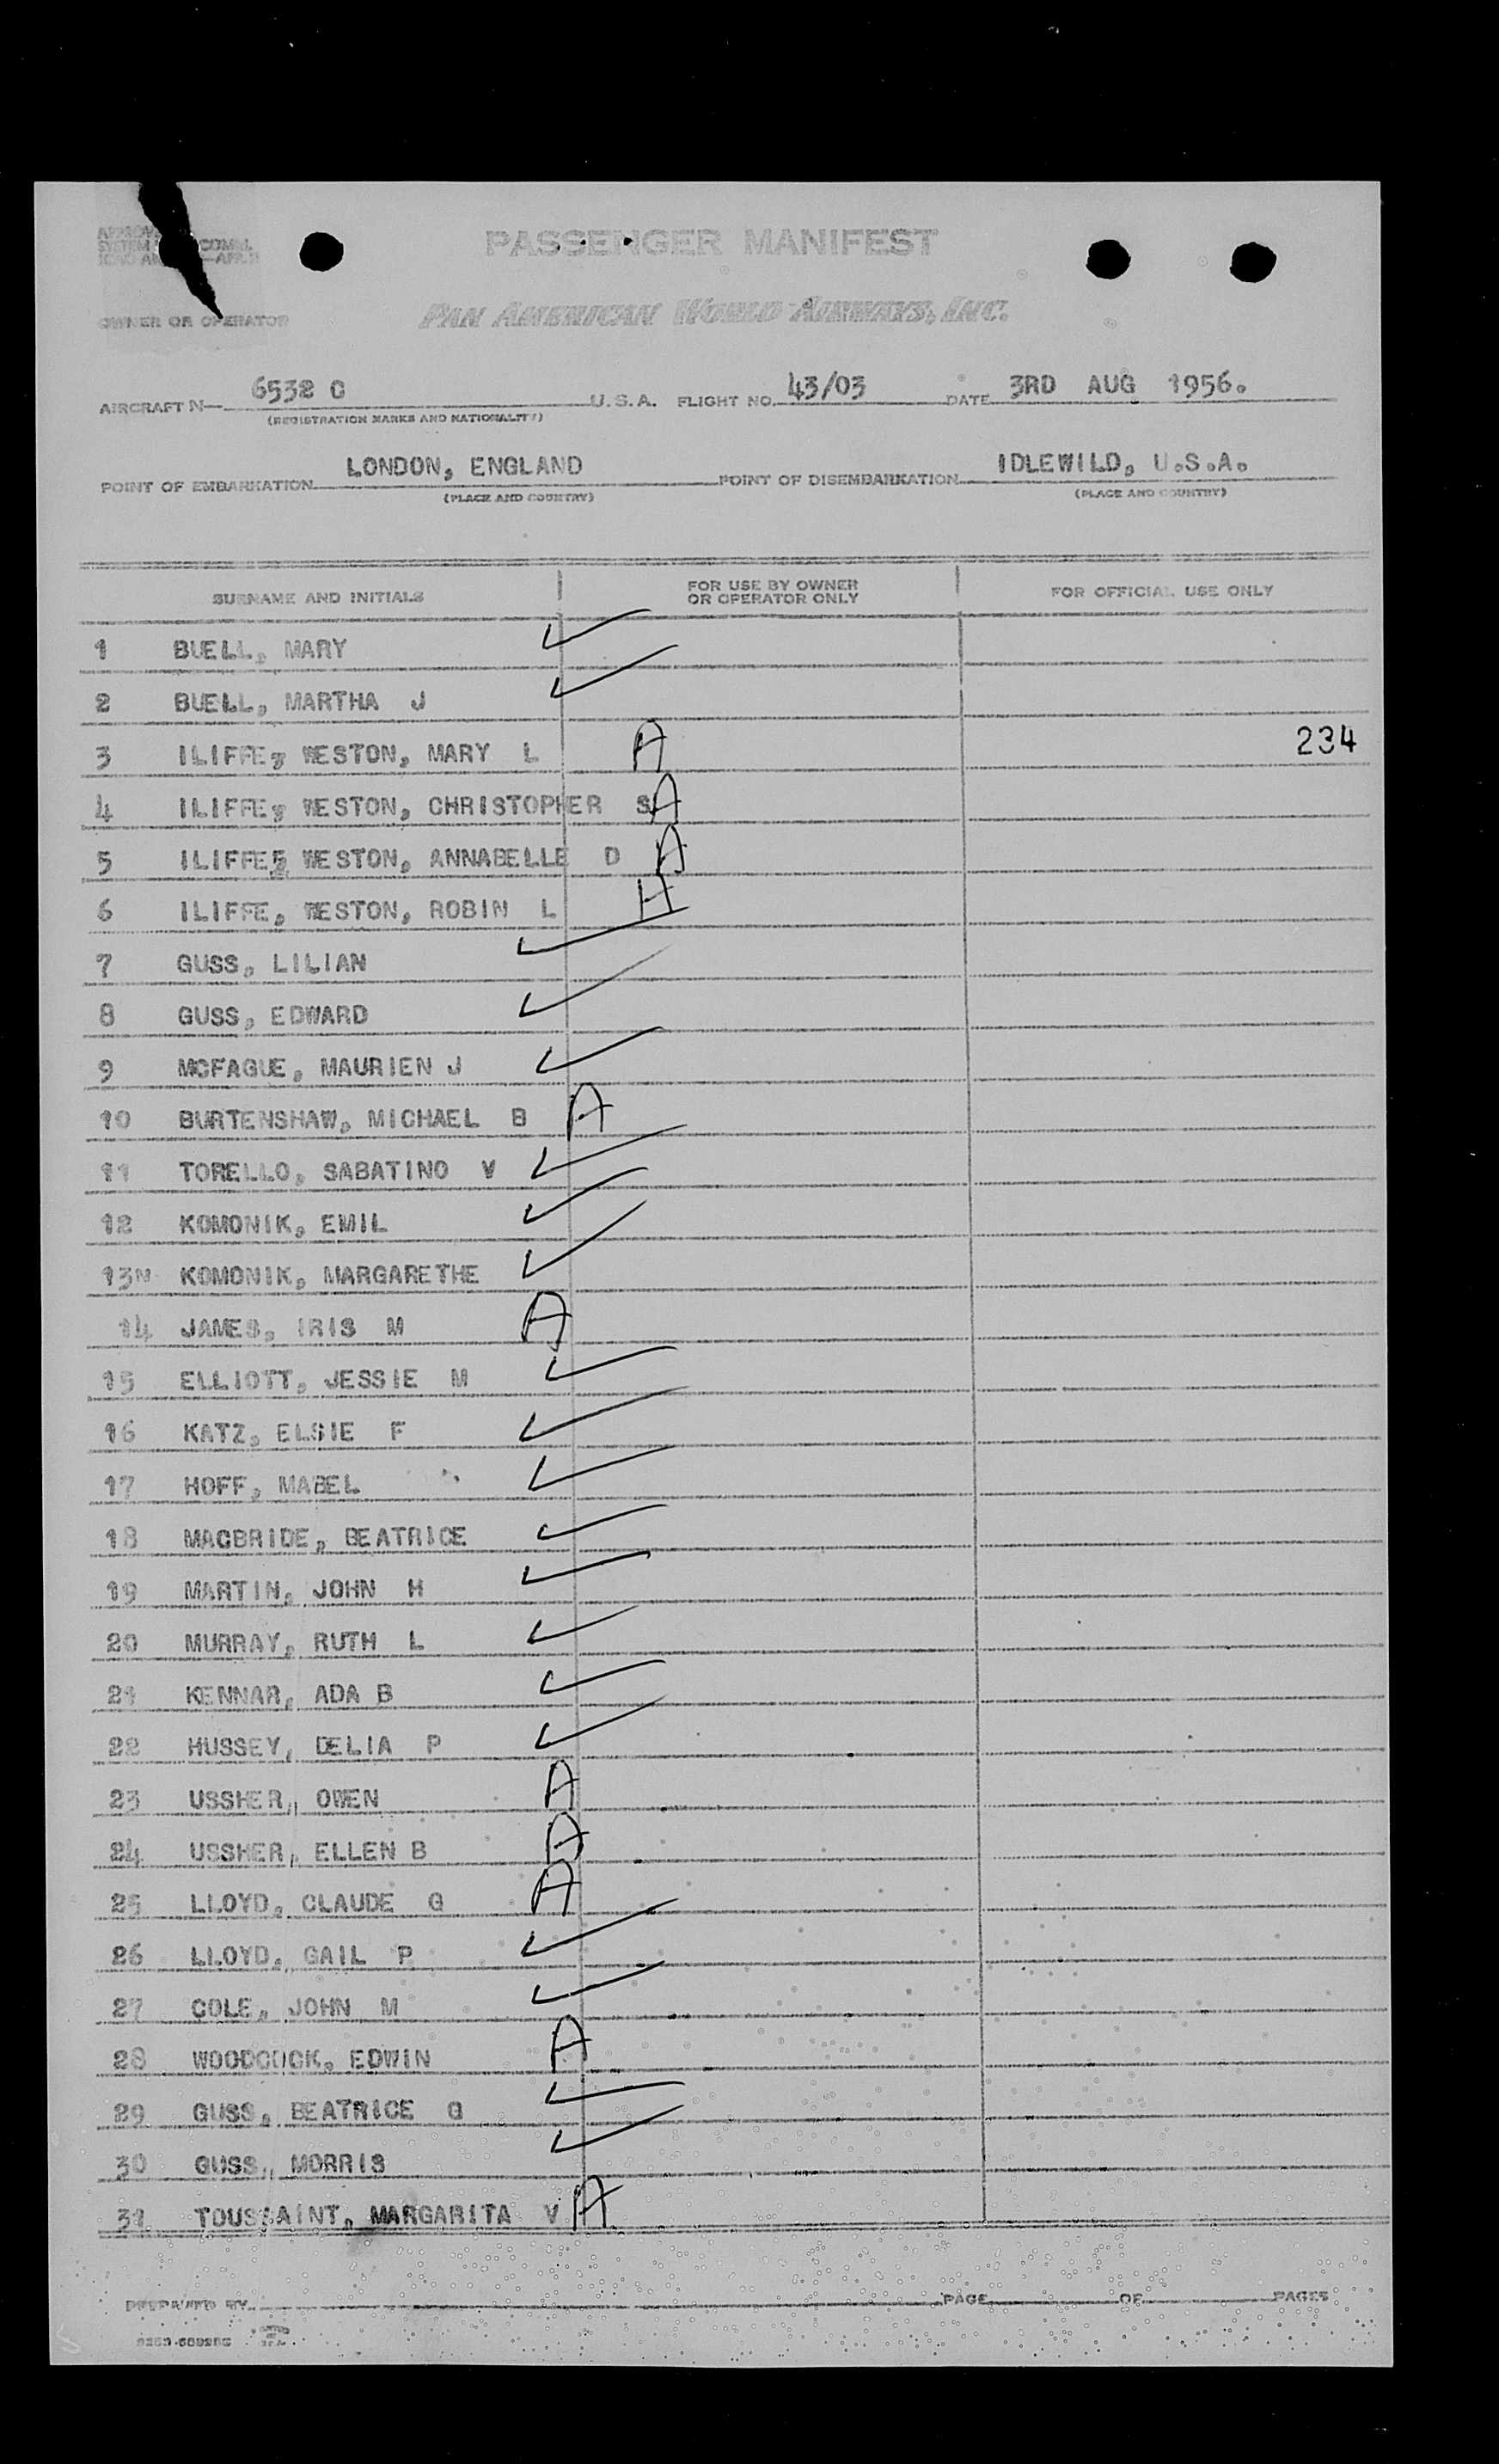 PASSENGER MANIFEST
OWNER OR OPERATOR PAN AMERICAN WORLD AIRWAYS, INC.
AIRCRAFT N 6532 C U.S.A. FLIGHT NO. 43/03 DATE 3RD AUG 1956.
(REGISTRATION MARKS AND NATIONALITY)
POINT OF EMBARKATION LONDON, ENGLAND POINT OF DISEMBARKATION IDLEWILD, U.S.A.
(PLACE AND COUNTRY) (PLACE AND COUNTRY)
SURNAME AND INITIALS FOR USE BY OWNER OR OPERATOR ONLY FOR OFFICIAL USE ONLY
1 BUELL, MARY
2 BUELL, MARTHA J
3 ILIFFE, WESTON, MARY L A 234
4 ILIFFE, WESTON, CHRISTOPHER S A
5 ILIFFE, WESTON, ANNABELLE D A
6 ILIFFE, WESTON, ROBIN L H
7 GUSS, LILIAN
8 GUSS, EDWARD
9 MCFAGUE, MAURIEN J
10 BURTENSHAW, MICHAEL B A
11 TORELLO, SABATINO V
12 KOMONIK, EMIL
13N KOMONIK, MARGARETHE
14 JAMES, IRIS M A
15 ELLIOTT, JESSIE M
16 KATZ, ELSIE F
17 HOFF, MABEL
18 MACBRIDE, BEATRICE
19 MARTIN, JOHN H
20 MURRAY, RUTH L
21 KENNAR, ADA B
22 HUSSEY, DELIA P
23 USSHER, OWEN A
24 USSHER, ELLEN B A
25 LLOYD, CLAUDE G A
26 LLOYD, GAIL P
27 COLE, JOHN M
28 WOODCOCK, EDWIN A
29 GUSS, BEATRICE G
30 GUSS, MORRIS
31 TOUSSAINT, MARGARITA V A
PREPARED BY PAGE OF PAGES